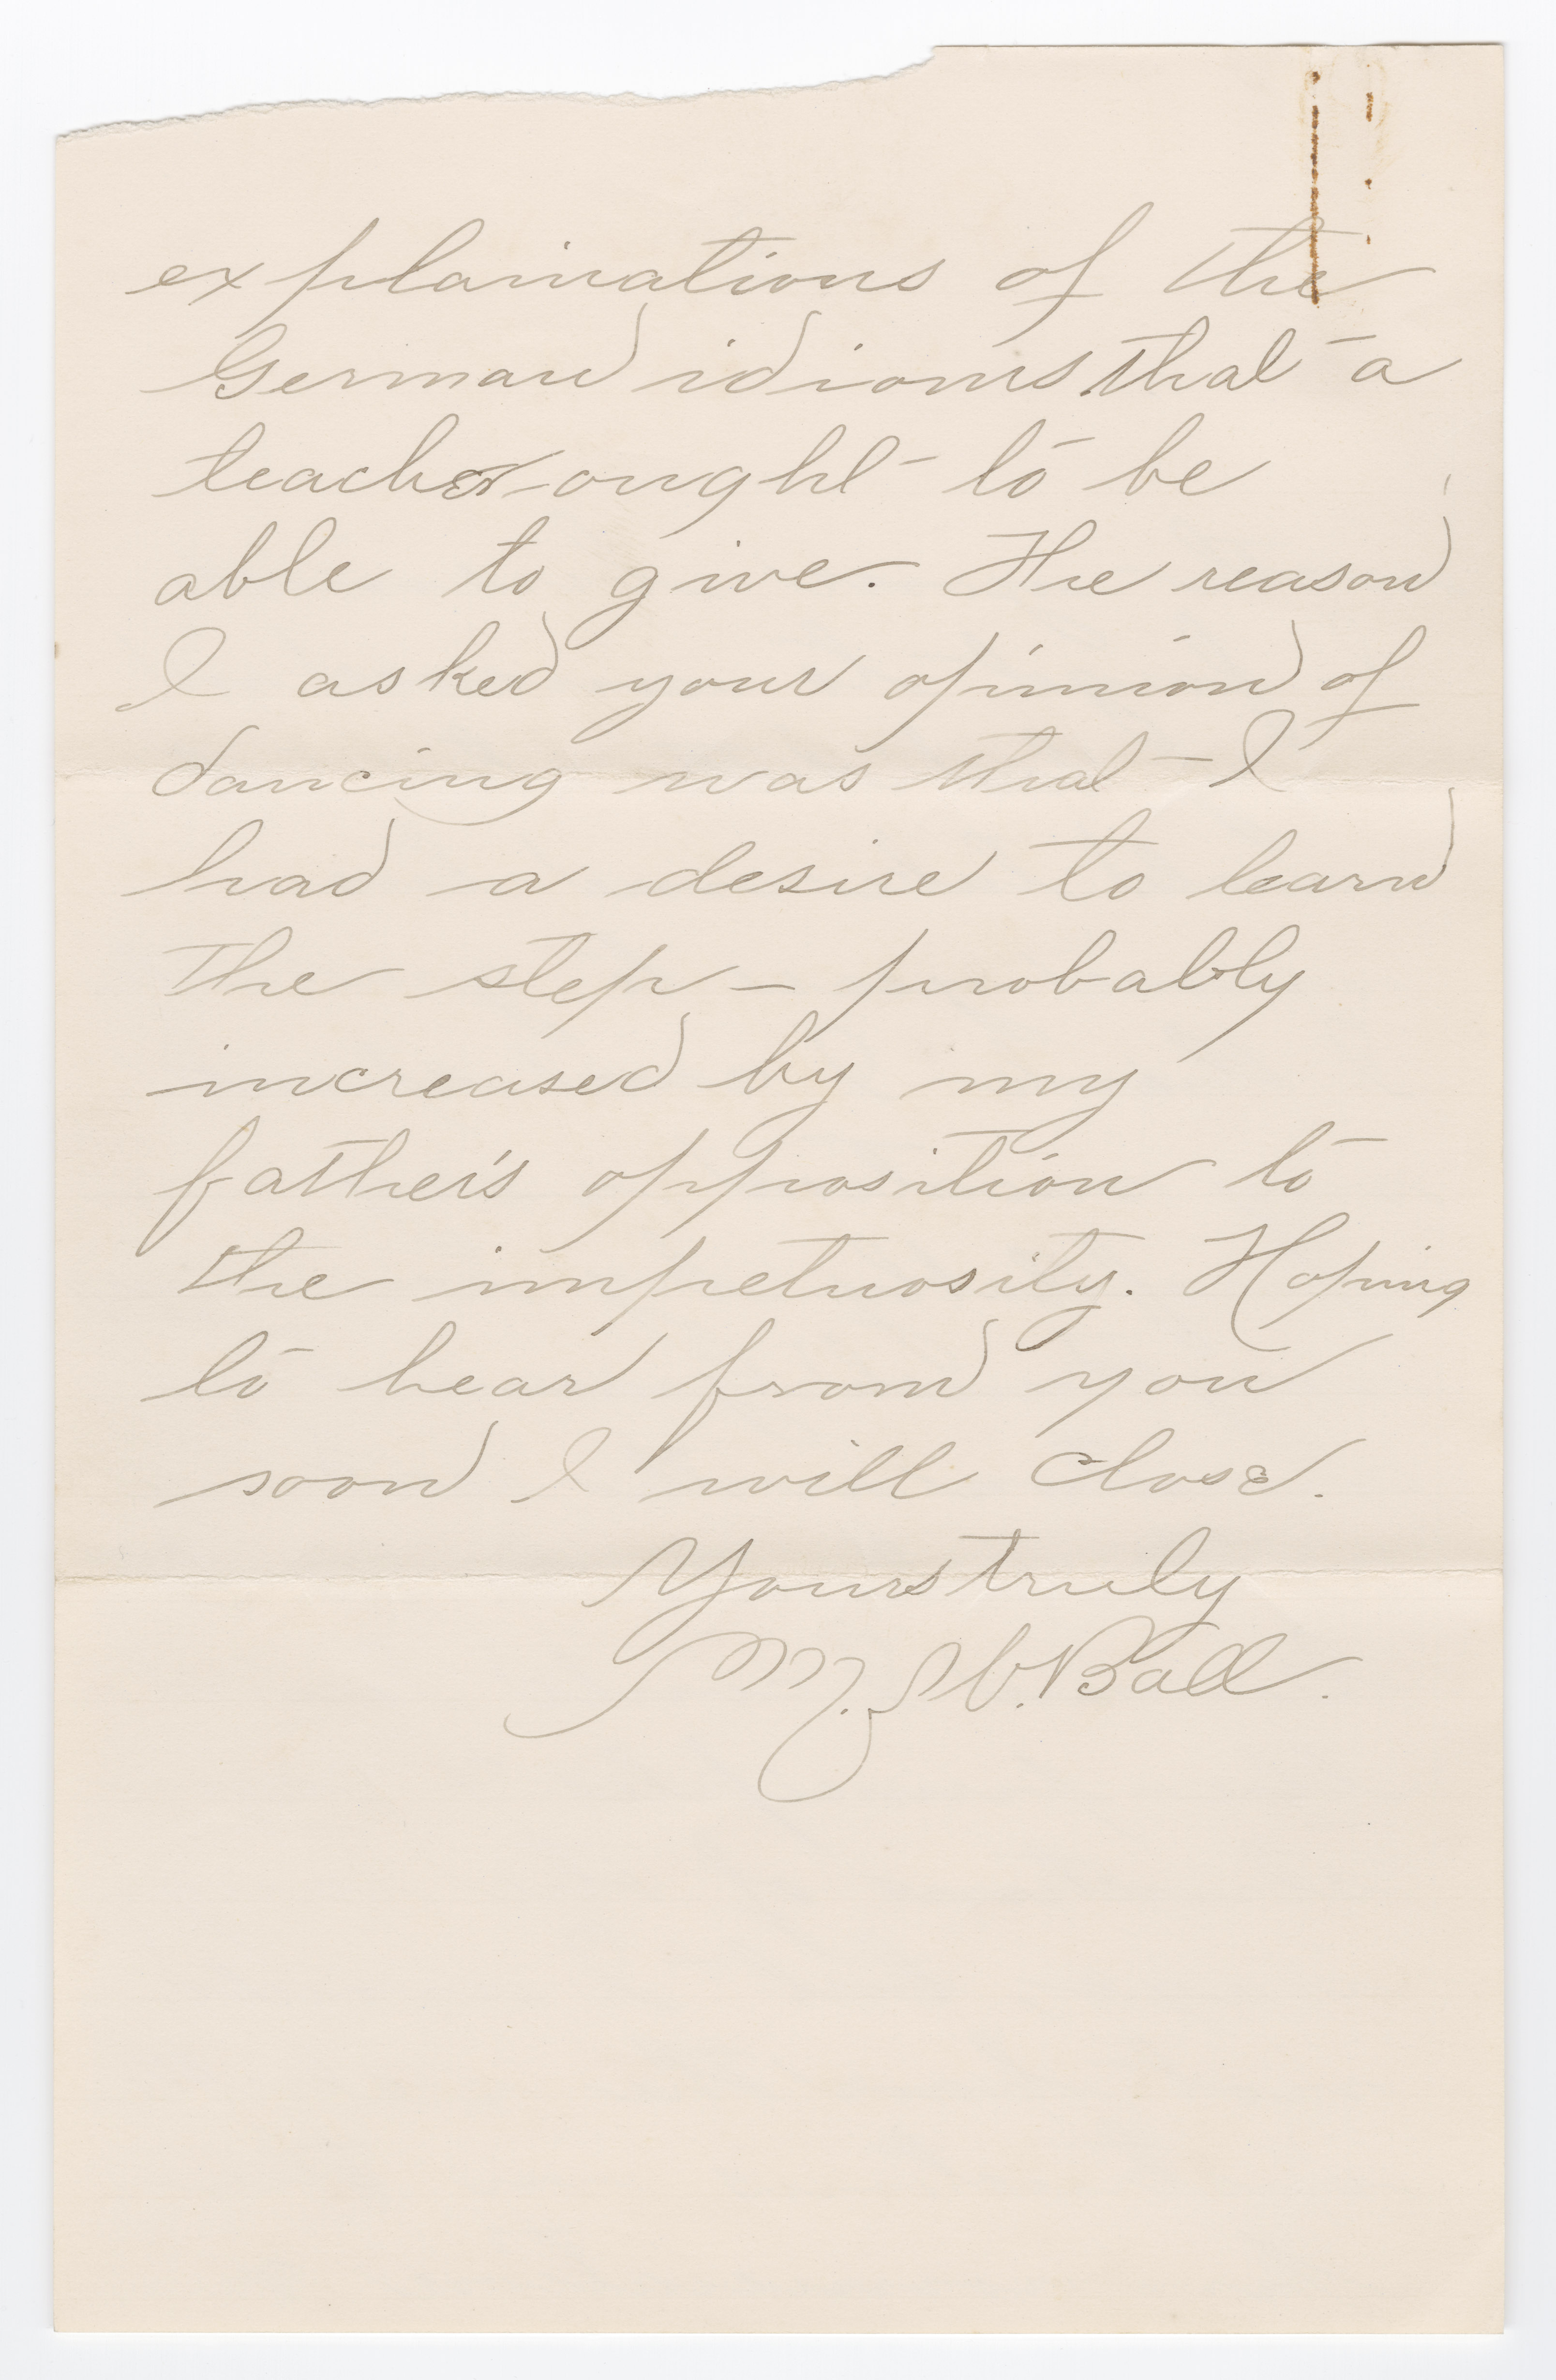 explainations of the
German idioms that a
teacher ought to be
able to give. The reason
I asked your opinion of
dancing was that I
had a desire to learn
the step - probably
increased by my
father's opposition to
the impetuosity. Hoping
to hear from you
soon I will close.
Yours truly
M. W. Ball.